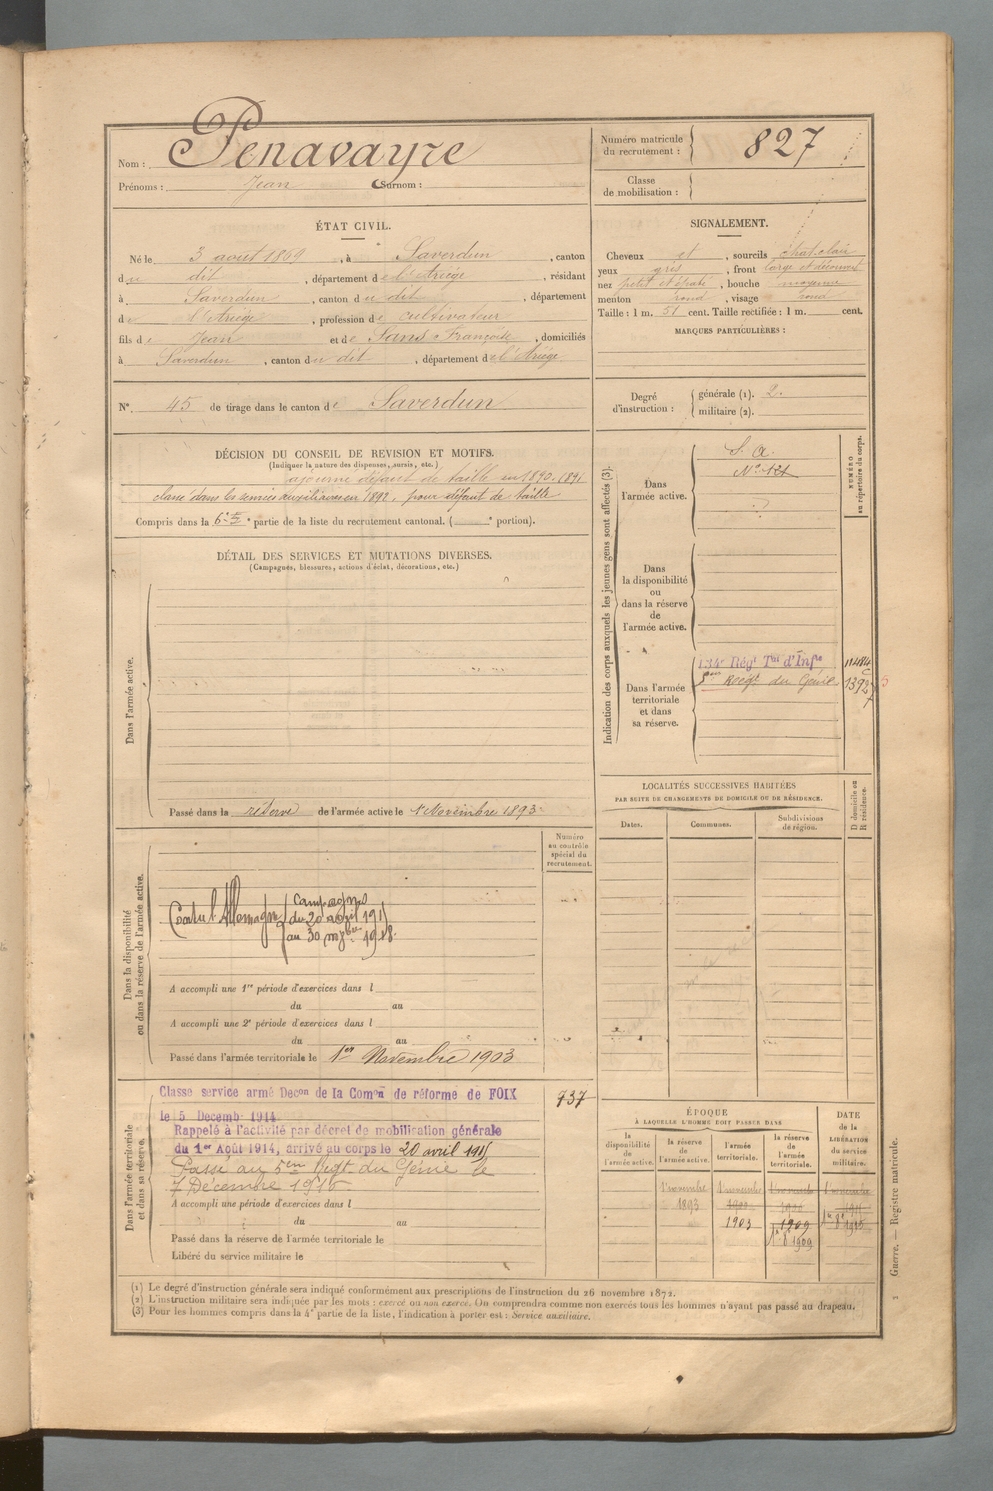 Nom : Penavayre
Prénoms : Jean Surnom :
Numéro matricule du recrutement : 827
Classe de mobilisation :
ÉTAT CIVIL.
Né le 3 août 1869, à Saverdun, canton
du dit, département de l'Ariège, résidant
à Saverdun, canton du dit, département
de l'Ariège, profession de cultivateur
fils de Jean et de Sans Françoise, domiciliés
à Saverdun, canton du dit, département de l'Ariège
SIGNALEMENT.
Cheveux et, sourcils chat. clair
yeux gris, front large et découvert
nez petit et épaté, bouche moyenne
menton rond, visage rond
Taille : 1 m. 51 cent. Taille rectifiée : 1 m. cent.
MARQUES PARTICULIÈRES :
N° 45 de tirage dans le canton de Saverdun
Degré d'instruction : générale (1). 2.
militaire (2).
DÉCISION DU CONSEIL DE REVISION ET MOTIFS.
(Indiquer la nature des dispenses, sursis, etc.)
ajourné défaut de taille en 1890. 1891
classé dans les services auxiliaires en 1892, pour défaut de taille
Compris dans la 6e partie de la liste du recrutement cantonal. ( e portion).
DÉTAIL DES SERVICES ET MUTATIONS DIVERSES.
(Campagnes, blessures, actions d'éclat, décorations, etc.)
Dans l'armée active.
Passé dans la réserve de l'armée active le 1er Novembre 1893
Indication des corps auxquels les jeunes gens sont affectés (3).
NUMÉRO au répertoire du corps.
Dans l'armée active.
S. a.
N° 121
Dans la disponibilité ou dans la réserve de l'armée active.
Dans l'armée territoriale et dans sa réserve.
134e Régt Tal d'Infie
5me Régt du Génie 1392
LOCALITÉS SUCCESSIVES HABITÉES
PAR SUITE DE CHANGEMENTS DE DOMICILE OU DE RÉSIDENCE.
Dates. Communes. Subdivisions de région. D domicile ou R résidence.
Numéro au contrôle spécial du recrutement.
Dans la disponibilité ou dans la réserve de l'armée active.
Campagnes
Contre l'Allemagne du 20 avril 1915
au 30 9bre 1918.
A accompli une 1re période d'exercices dans l
du au
A accompli une 2e période d'exercices dans l
du au
Passé dans l'armée territoriale le 1er Novembre 1903
Dans l'armée territoriale et dans sa réserve.
Classe service armé Decon de la Comon de réforme de FOIX
le 5 Decembr 1914
737
Rappelé à l'activité par décret de mobilisation générale
du 1er Août 1914, arrivé au corps le 20 avril 1915
Passé au 5em Regt du Génie le
7 Décembre 1915
A accompli une période d'exercices dans l
du au
Passé dans la réserve de l'armée territoriale le
Libéré du service militaire le
ÉPOQUE
À LAQUELLE L'HOMME DOIT PASSER DANS
la disponibilité de l'armée active. la réserve de l'armée active. l'armée territoriale. la réserve de l'armée territoriale. DATE de la LIBÉRATION du service militaire.
1er novembre 1er novembre 1er novembre 1er novembre
1893 1900
1903 1909
1909
(1) Le degré d'instruction générale sera indiqué conformément aux prescriptions de l'instruction du 26 novembre 1872.
(2) L'instruction militaire sera indiquée par les mots : exercé ou non exercé. On comprendra comme non exercés tous les hommes n'ayant pas passé au drapeau.
(3) Pour les hommes compris dans la 4e partie de la liste, l'indication à porter est : Service auxiliaire.
Guerre. — Registre matricule.